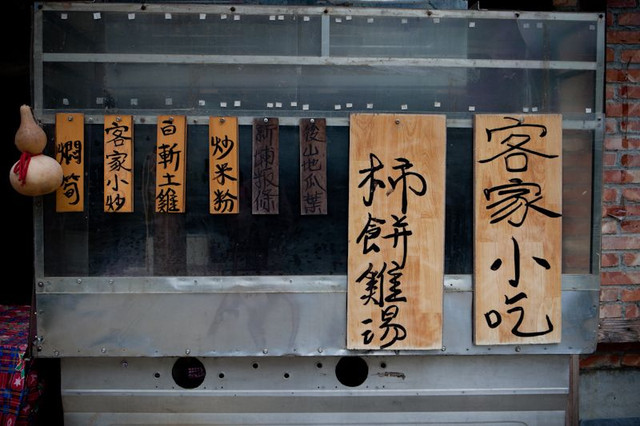 燜筍
客家小炒
白斬土雞
炒米粉
新埔粄條
後山地瓜葉
柿餅雞湯
客家小吃